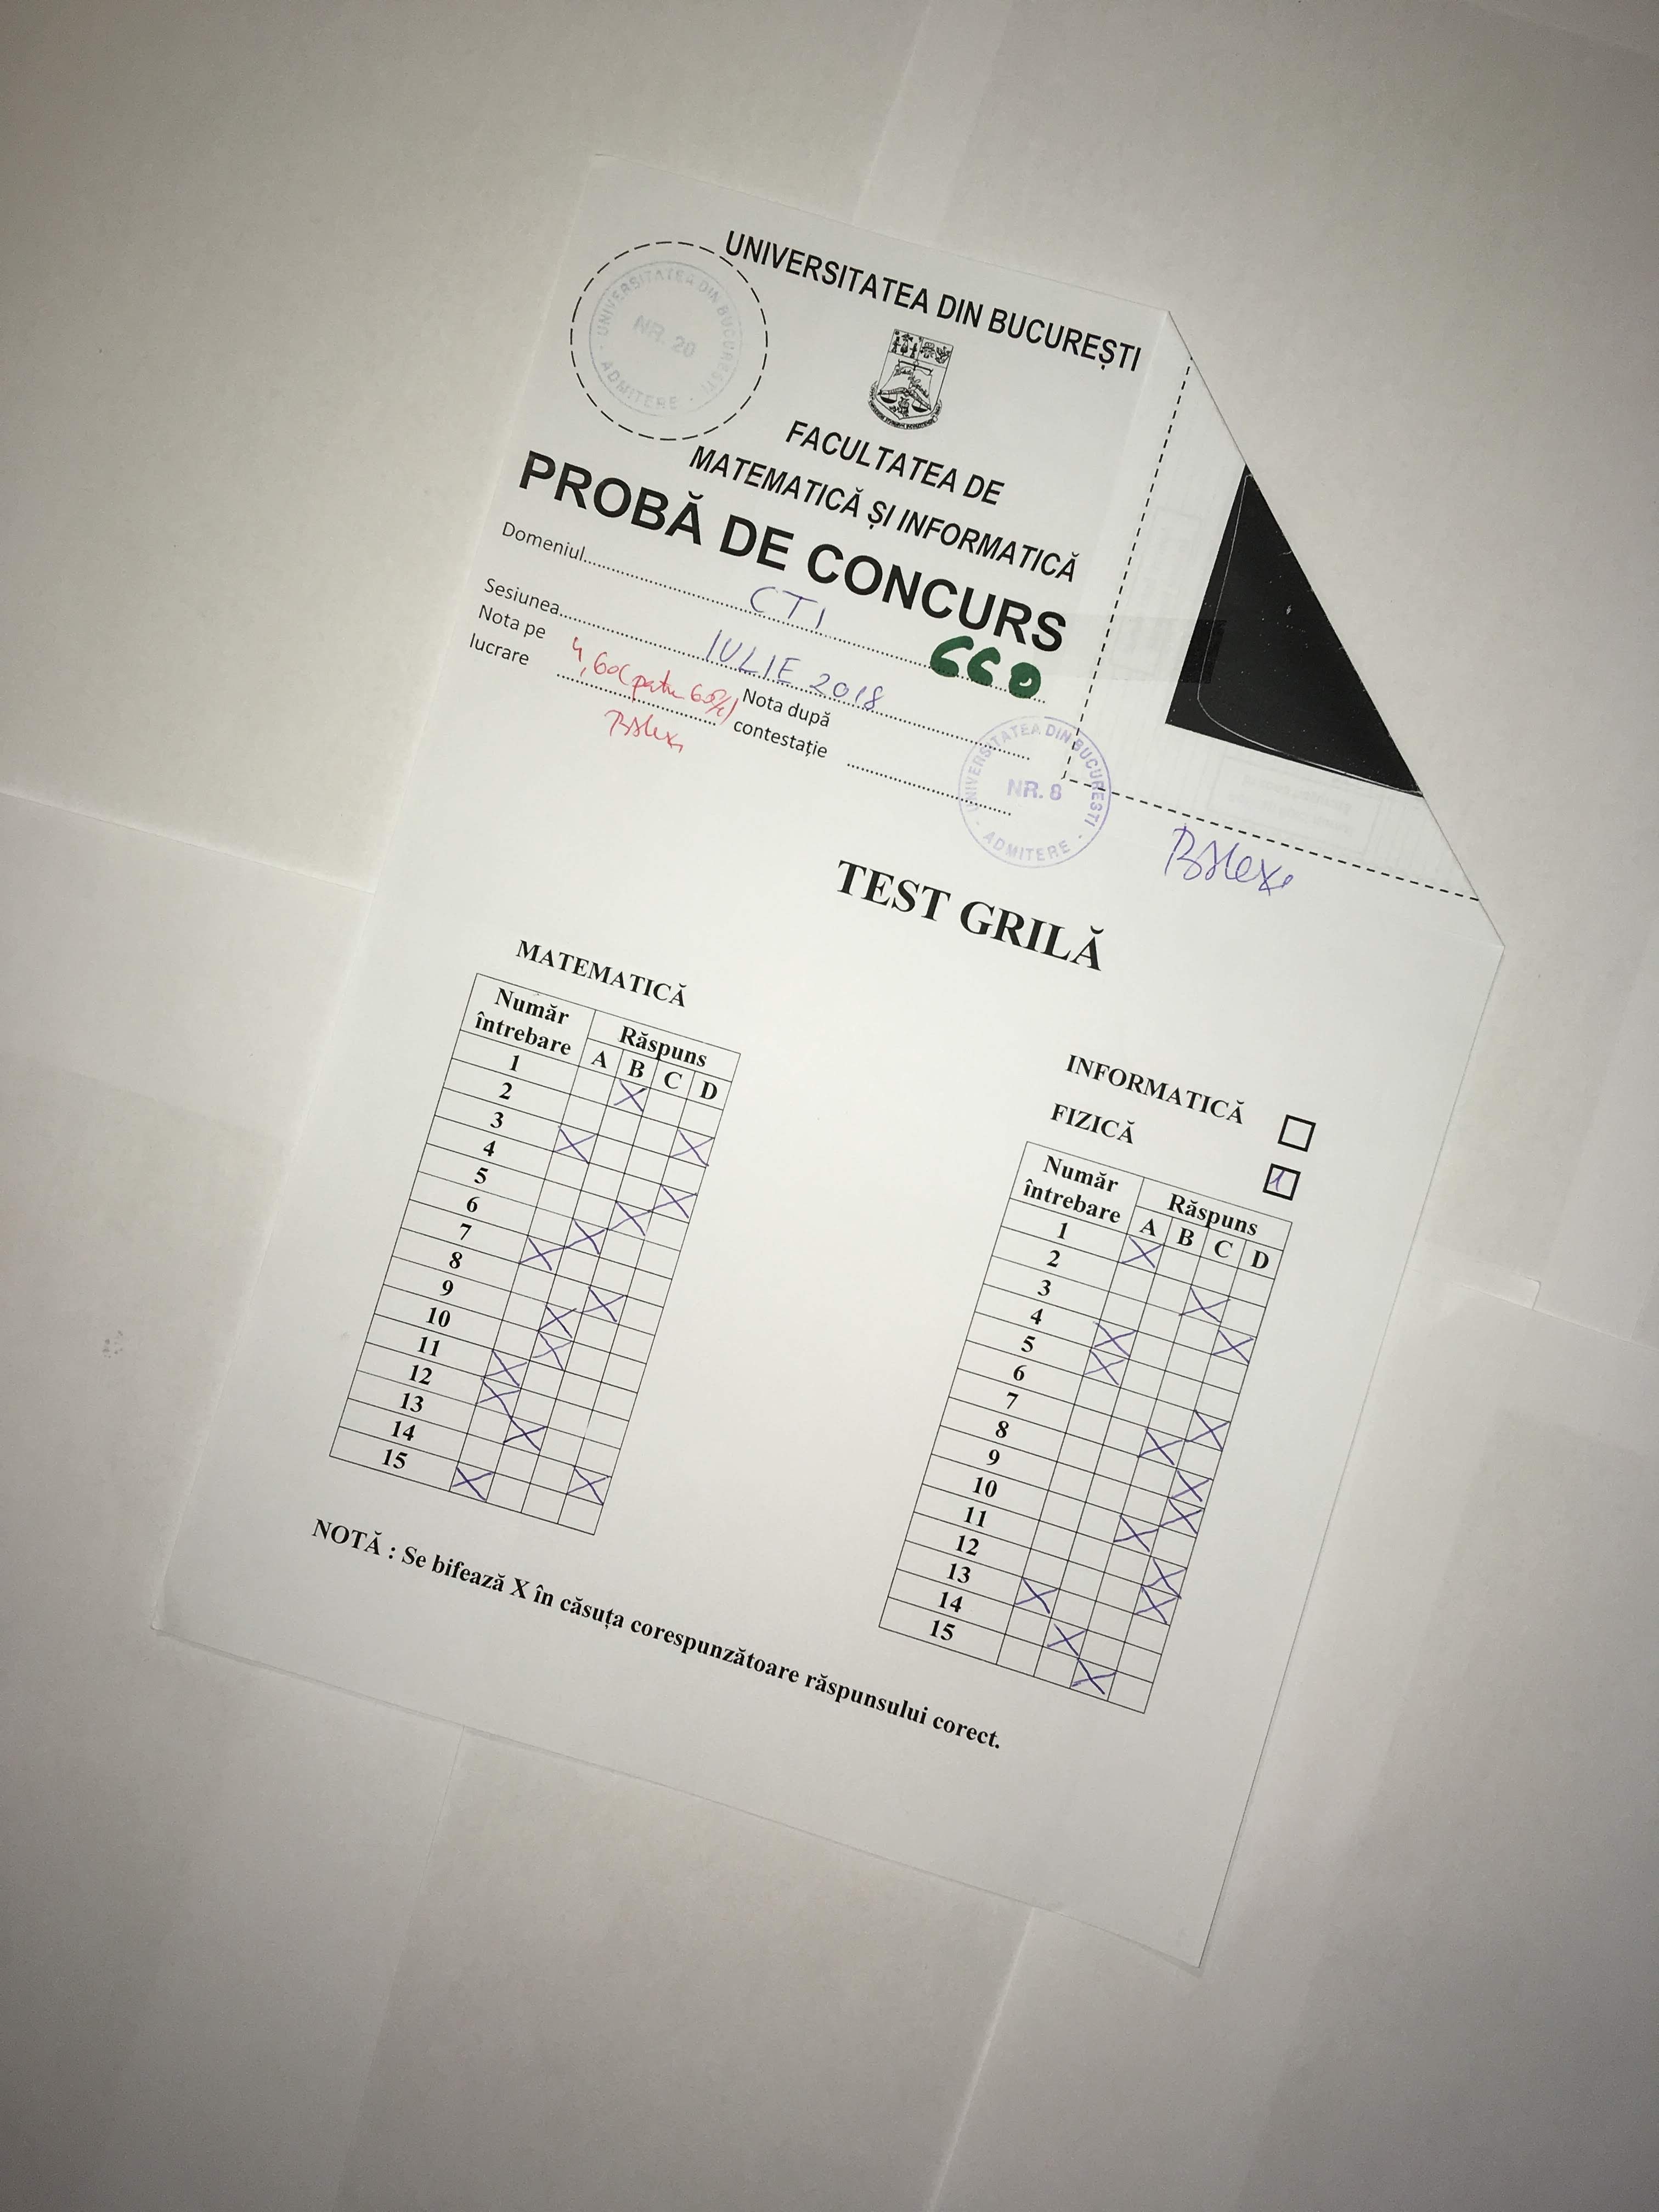 UNIVERSITATEA DIN BUCUREȘTI
UNIVERSITATEA DIN BUCUREȘTI
NR. 20
ADMITERE
FACULTATEA DE
MATEMATICĂ ȘI INFORMATICĂ
PROBĂ DE CONCURS
Domeniul CTI
660
Sesiunea IULIE 2018
Nota pe lucrare 4,60 (patru 60%)
Nota după contestație
UNIVERSITATEA DIN BUCUREȘTI
NR. 8
ADMITERE
TEST GRILĂ
MATEMATICĂ
Număr întrebare Răspuns
A B C D
1 X
2 X
3 X
4 X
5 X
6 X
7 X
8 X
9 X
10 X
11 X
12 X
13 X
14 X
15 X
INFORMATICĂ
FIZICĂ
Număr întrebare Răspuns
A B C D
1 X
2 X
3 X
4 X
5 X
6 X
7 X
8 X
9 X
10 X
11 X
12 X
13 X
14 X
15 X
NOTĂ : Se bifează X în căsuța corespunzătoare răspunsului corect.